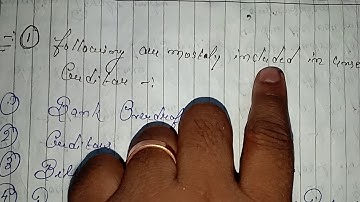 ① following are mostly included in unse
Creditor :-
① Bank Overdraf
② Creditors
③ Bil
④